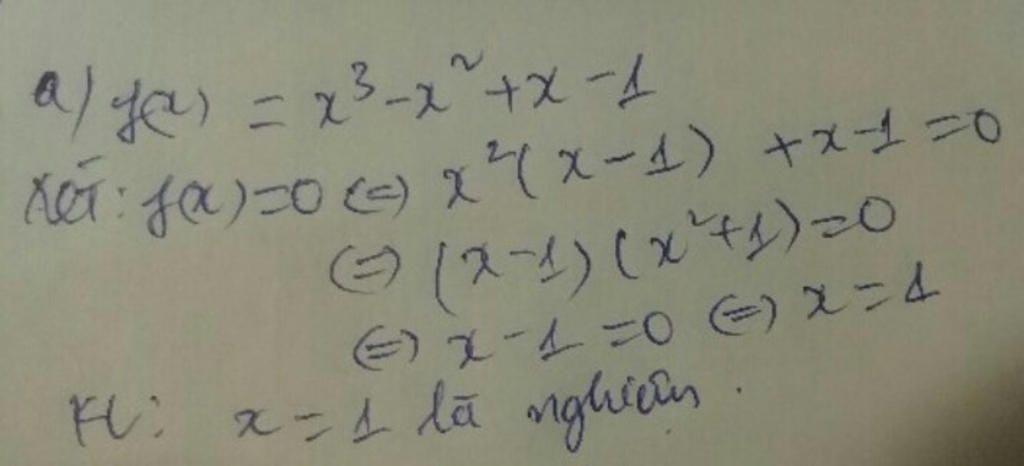 a) f(x) = x³ - x² + x - 1
Xét: f(x) = 0 ⇔ x²(x - 1) + x - 1 = 0
⇔ (x - 1)(x² + 1) = 0
⇔ x - 1 = 0 ⇔ x = 1
KL: x = 1 là nghiệm.